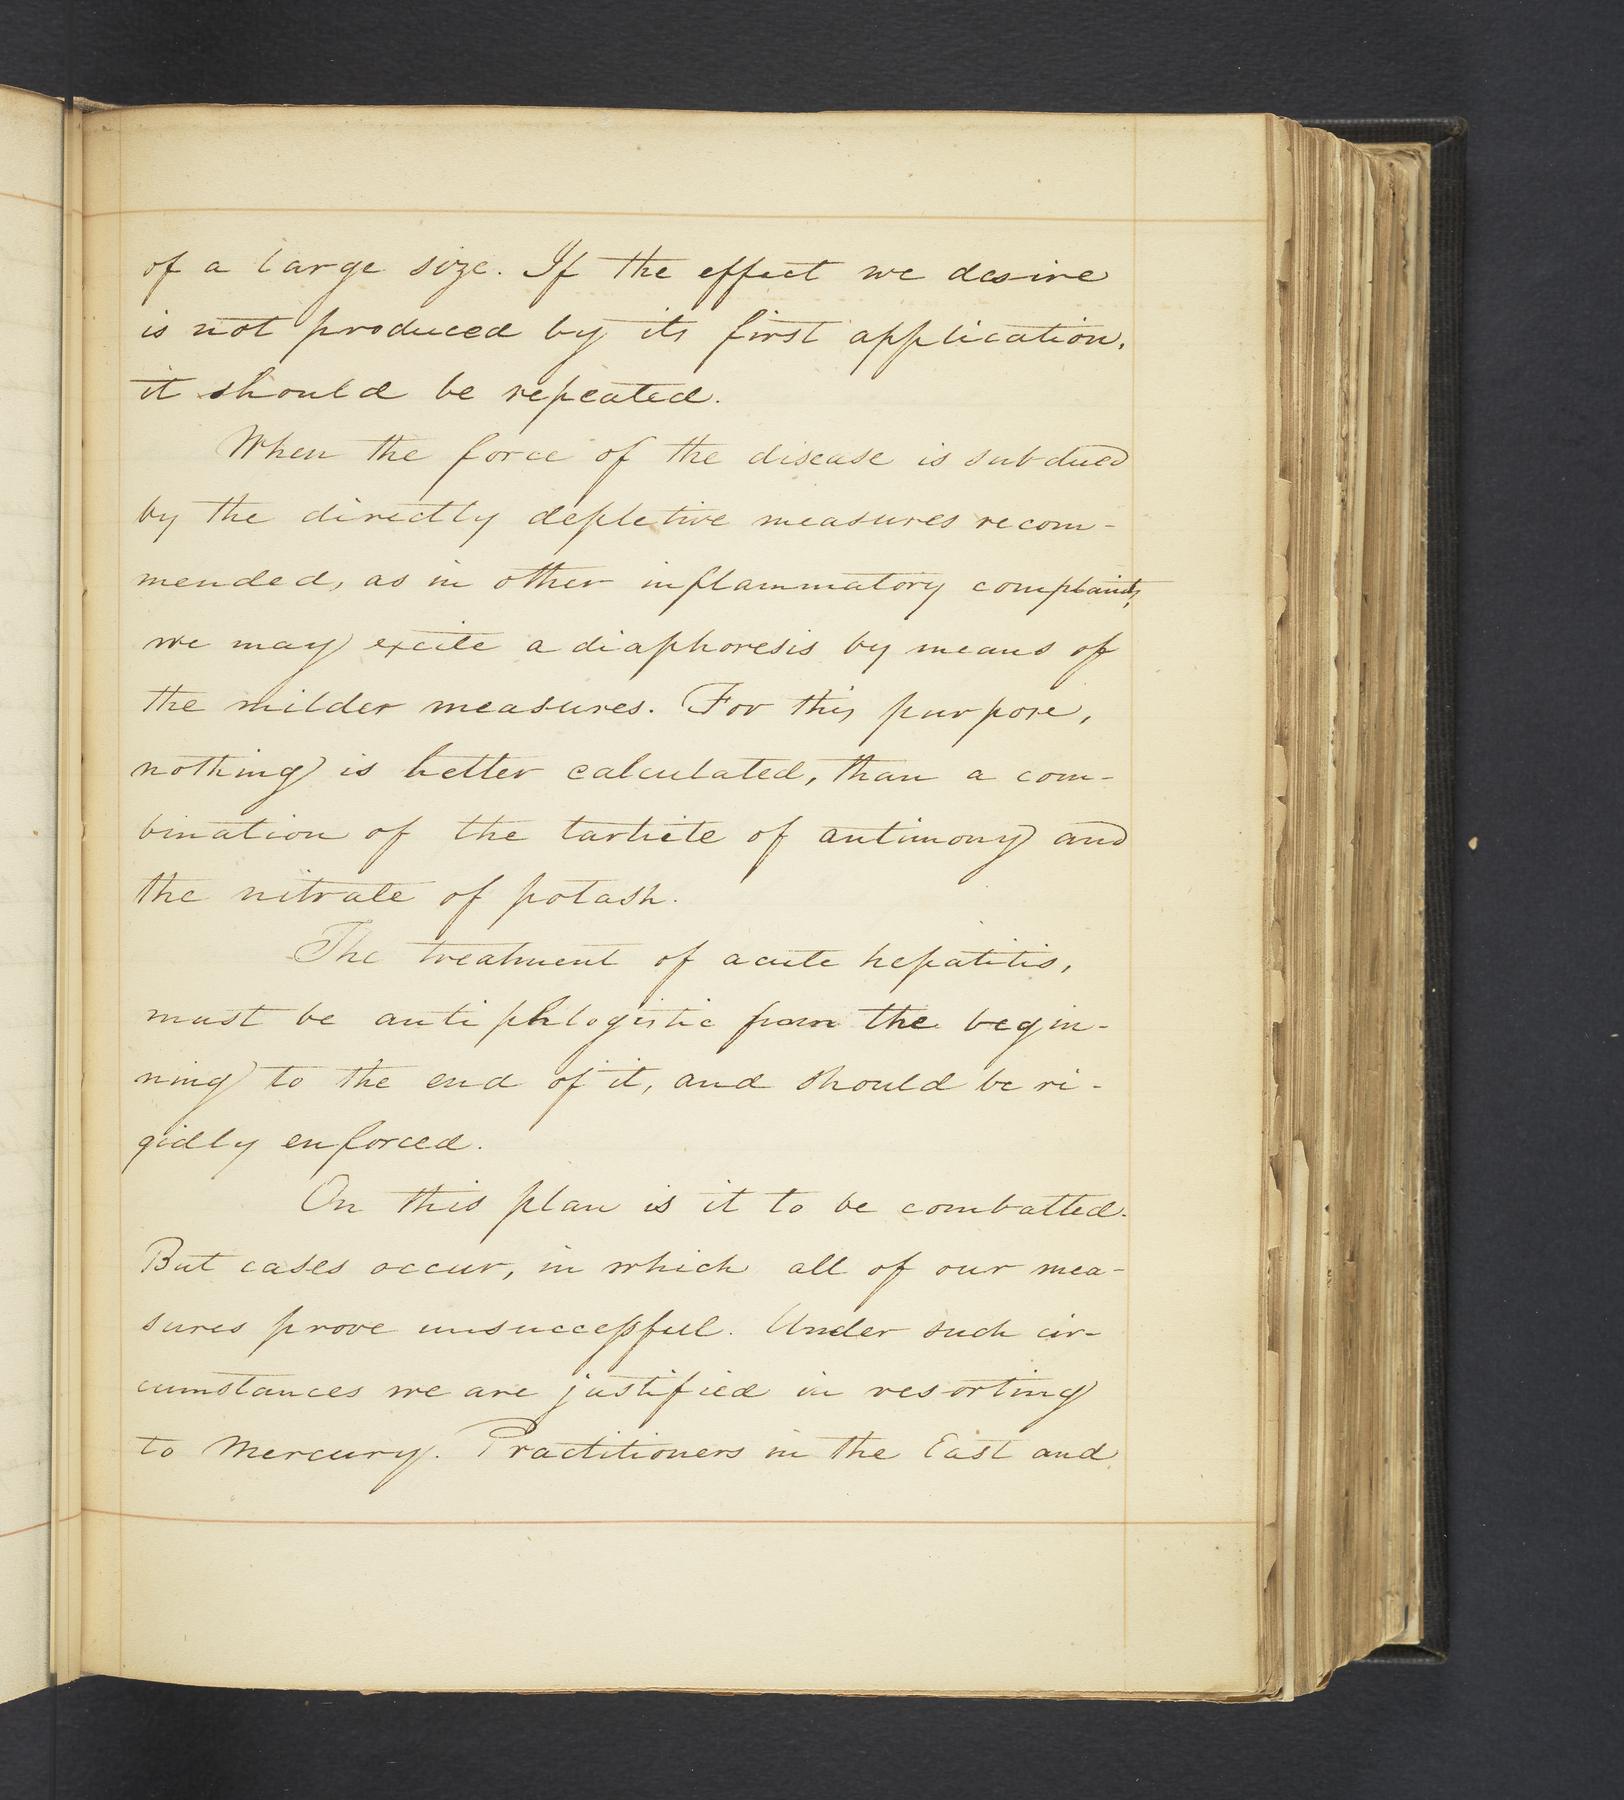 of a large size. If the effect we desire
is not produced by its first application,
it should be repeated.
When the force of the disease is subdued
by the directly depletive measures recom-
mended, as in other inflammatory complaints,
we may excite a diaphoresis by means of
the milder measures. For this purpose,
nothing is better calculated, than a com-
bination of the tartrite of antimony and
the nitrate of potash.
The treatment of acute hepatitis,
must be antiphlogistic from the begin-
ning to the end of it, and should be ri-
gidly enforced.
On this plan is it to be combatted.
But cases occur, in which all of our mea-
sures prove unsuccessful. Under such cir-
cumstances we are justified in resorting
to Mercury. Practitioners in the East and